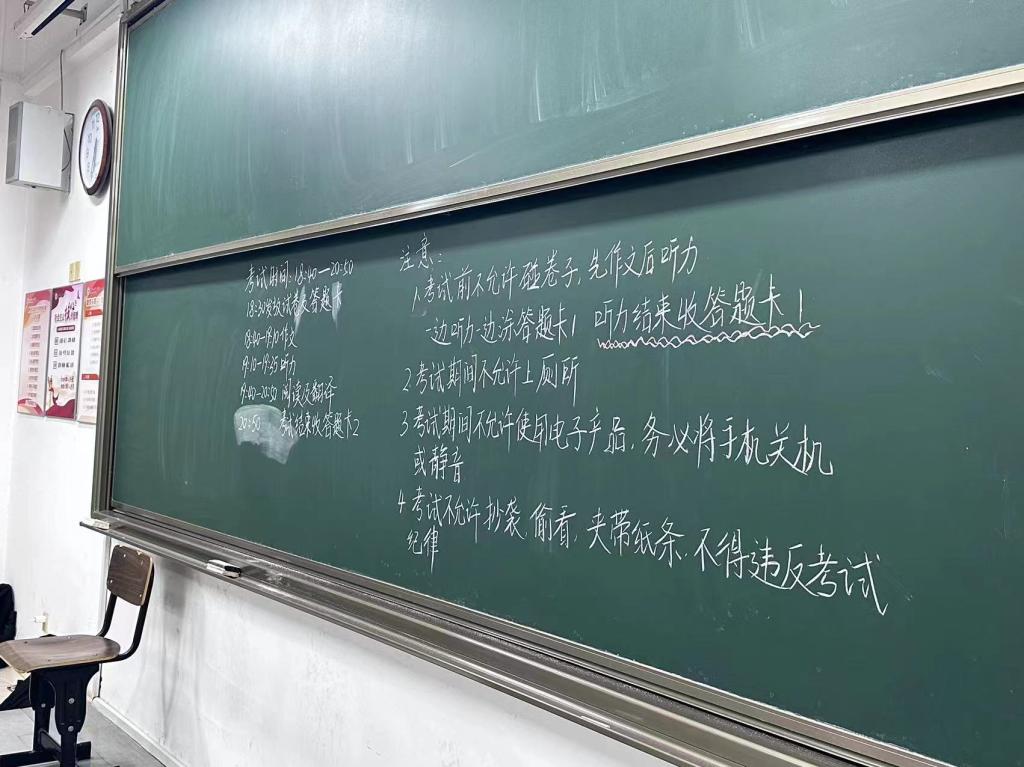 考试时间:18:40—20:50
18:30发放试卷及答题卡
18:40-19:10作文
19:10-19:25听力
19:40-20:50 阅读及翻译
20:50 考试结束收答题卡2
注意:
1.考试前不允许碰卷子,先作文后听力
一边听力一边涂答题卡1 听力结束收答题卡1
2考试期间不允许上厕所
3考试期间不允许使用电子产品,务必将手机关机
或静音
4考试不允许抄袭、偷看,夹带纸条,不得违反考试
纪律